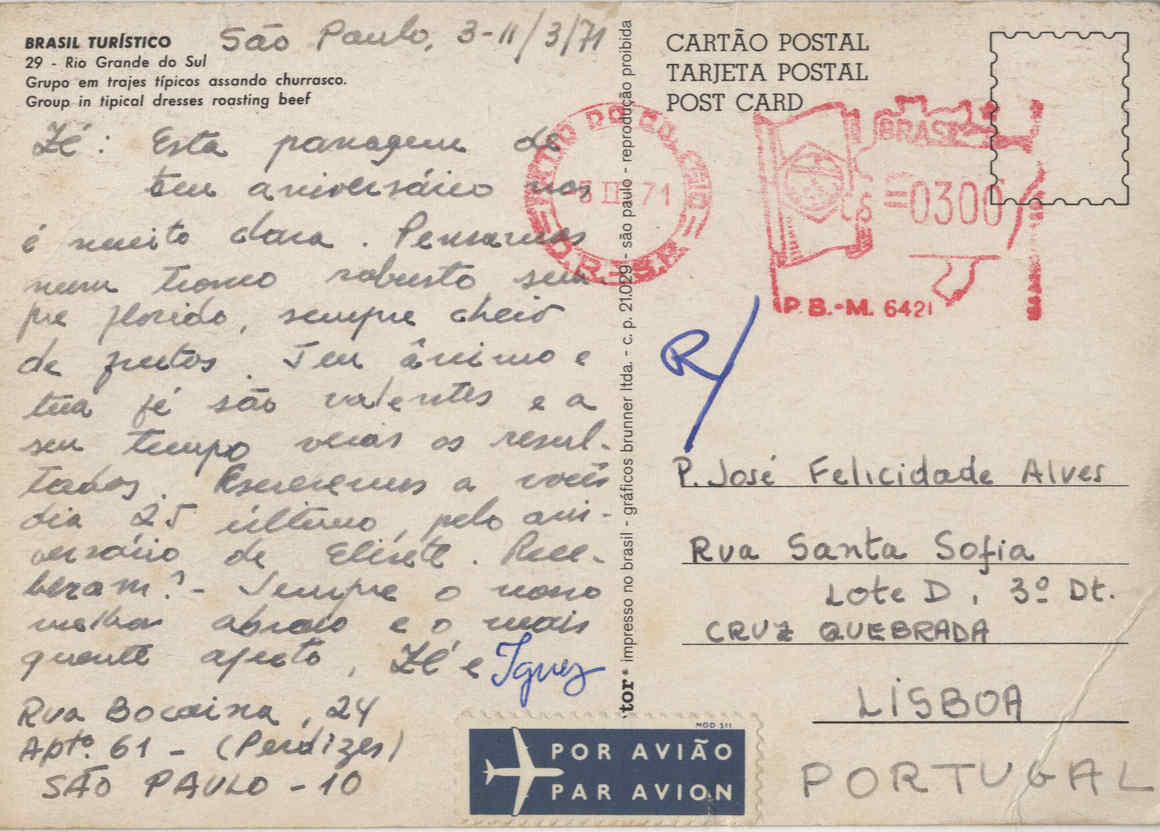 BRASIL TURÍSTICO
29 - Rio Grande do Sul
Grupo em trajes típicos assando churrasco.
Group in tipical dresses roasting beef
São Paulo, 3-11/3/71
Zé: Esta passagem de
teu aniversário nos
é muito cara. Pensamos
num tronco robusto sem
pre florido, sempre cheio
de frutos. Teu ânimo e
tua fé são valentes e a
seu tempo verás os resul-
tados. Escrevemos a vocês
dia 25 último, pelo ani-
versário de Elisete. Rece-
beram? - Sempre o nosso
melhor abraço e o mais
quente afeto, Zé e Ignez
Rua Bocaina, 24
Aptº. 61 - (Perdizes)
SÃO PAULO - 10
tor • impresso no brasil - gráficos brunner ltda. - c. p. 21.029 - são paulo - reprodução proibida
CARTÃO POSTAL
TARJETA POSTAL
POST CARD
D.R.-S.P.
71
BRASIL
=0300
P.B.-M. 6421
R/
P. José Felicidade Alves
Rua Santa Sofia
Lote D, 3º Dt.
CRUZ QUEBRADA
LISBOA
PORTUGAL
MOD 511
POR AVIÃO
PAR AVION